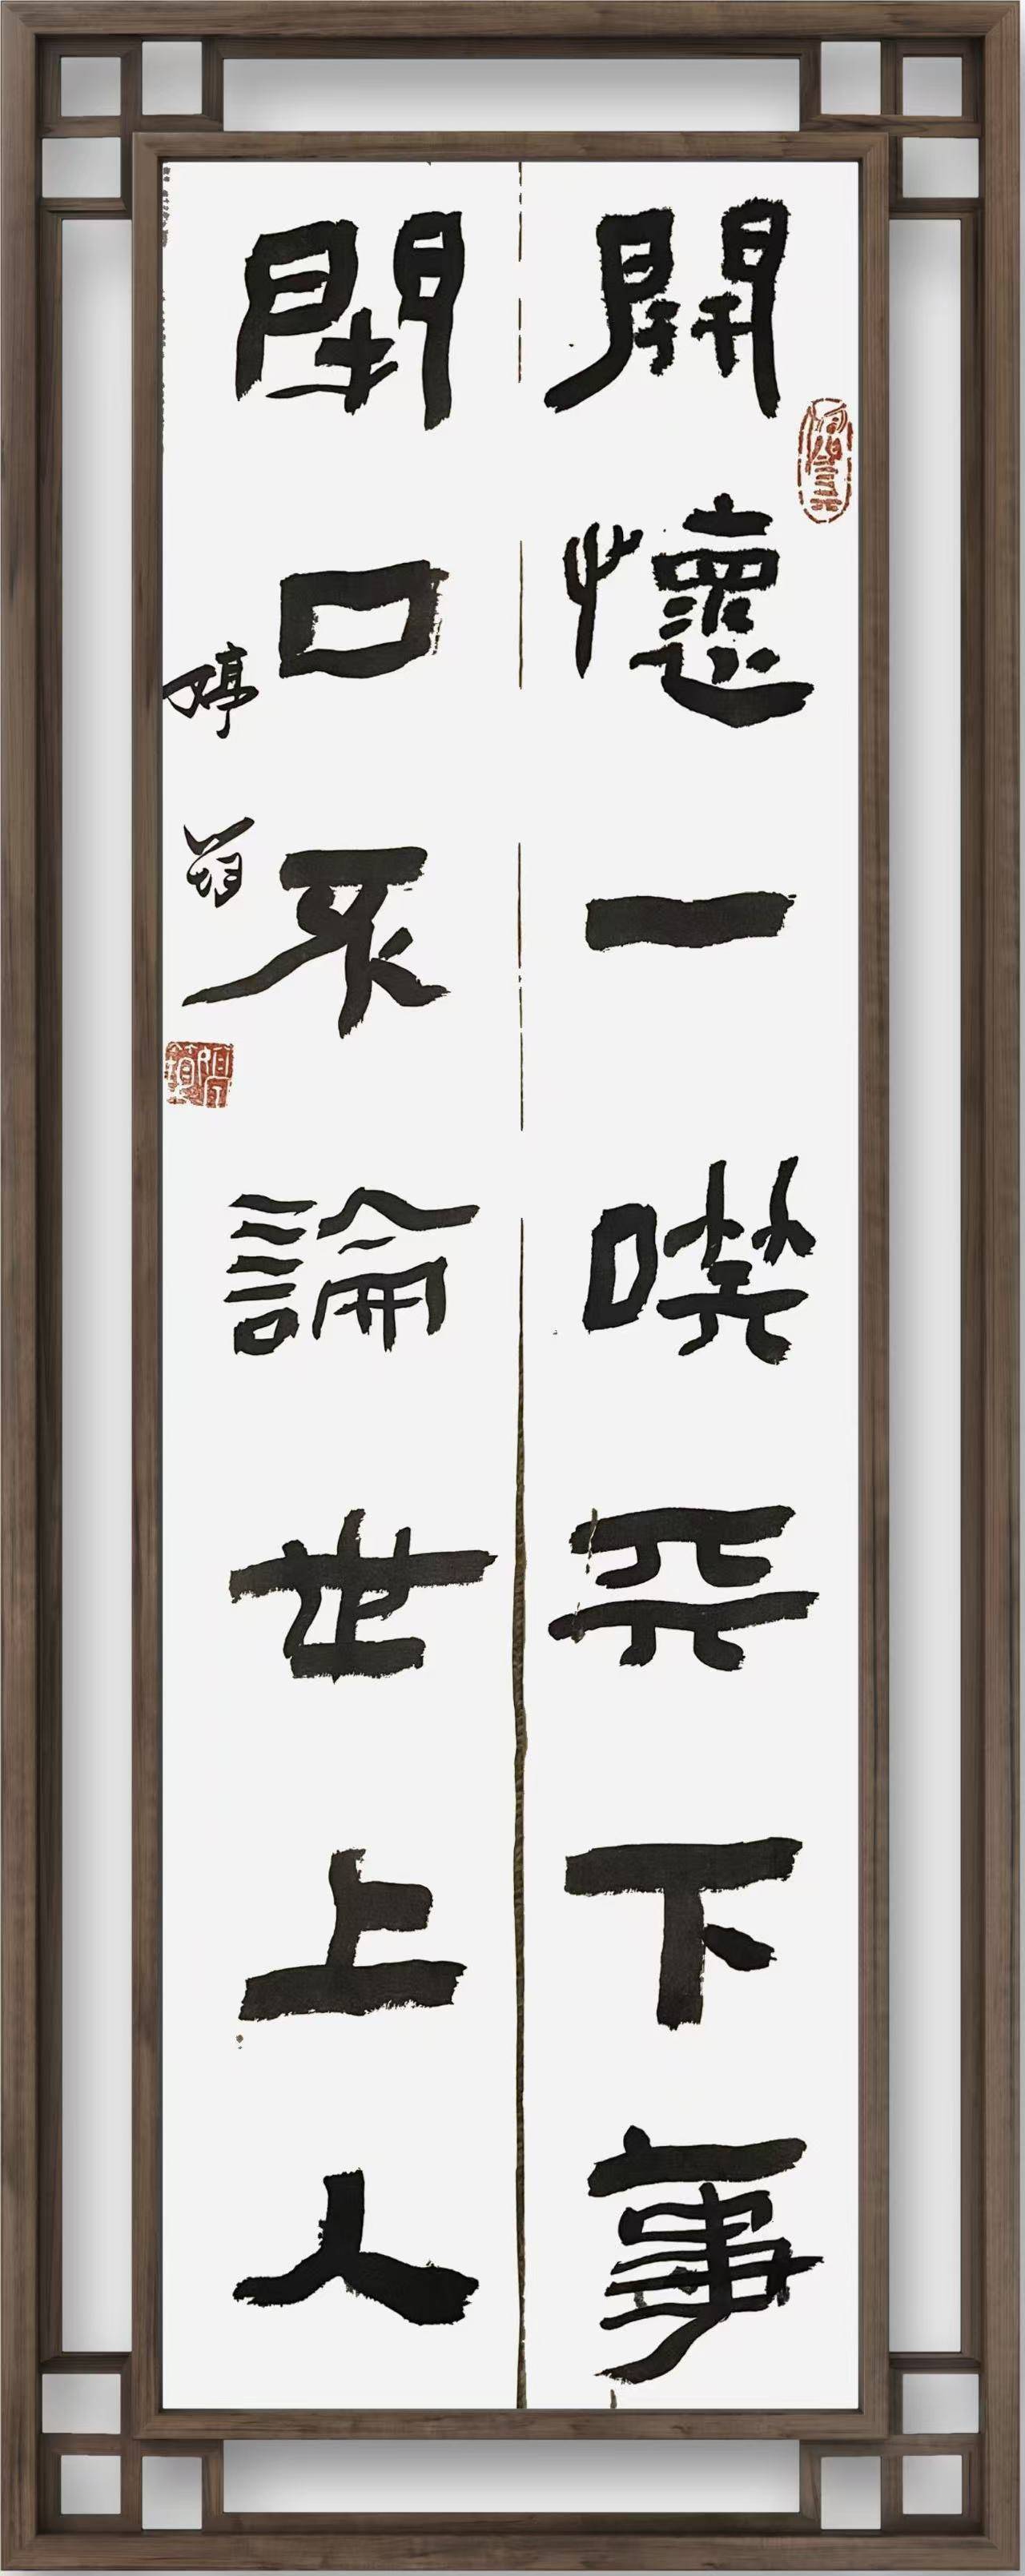 開懷一㗛天下事
閉口不論世上人